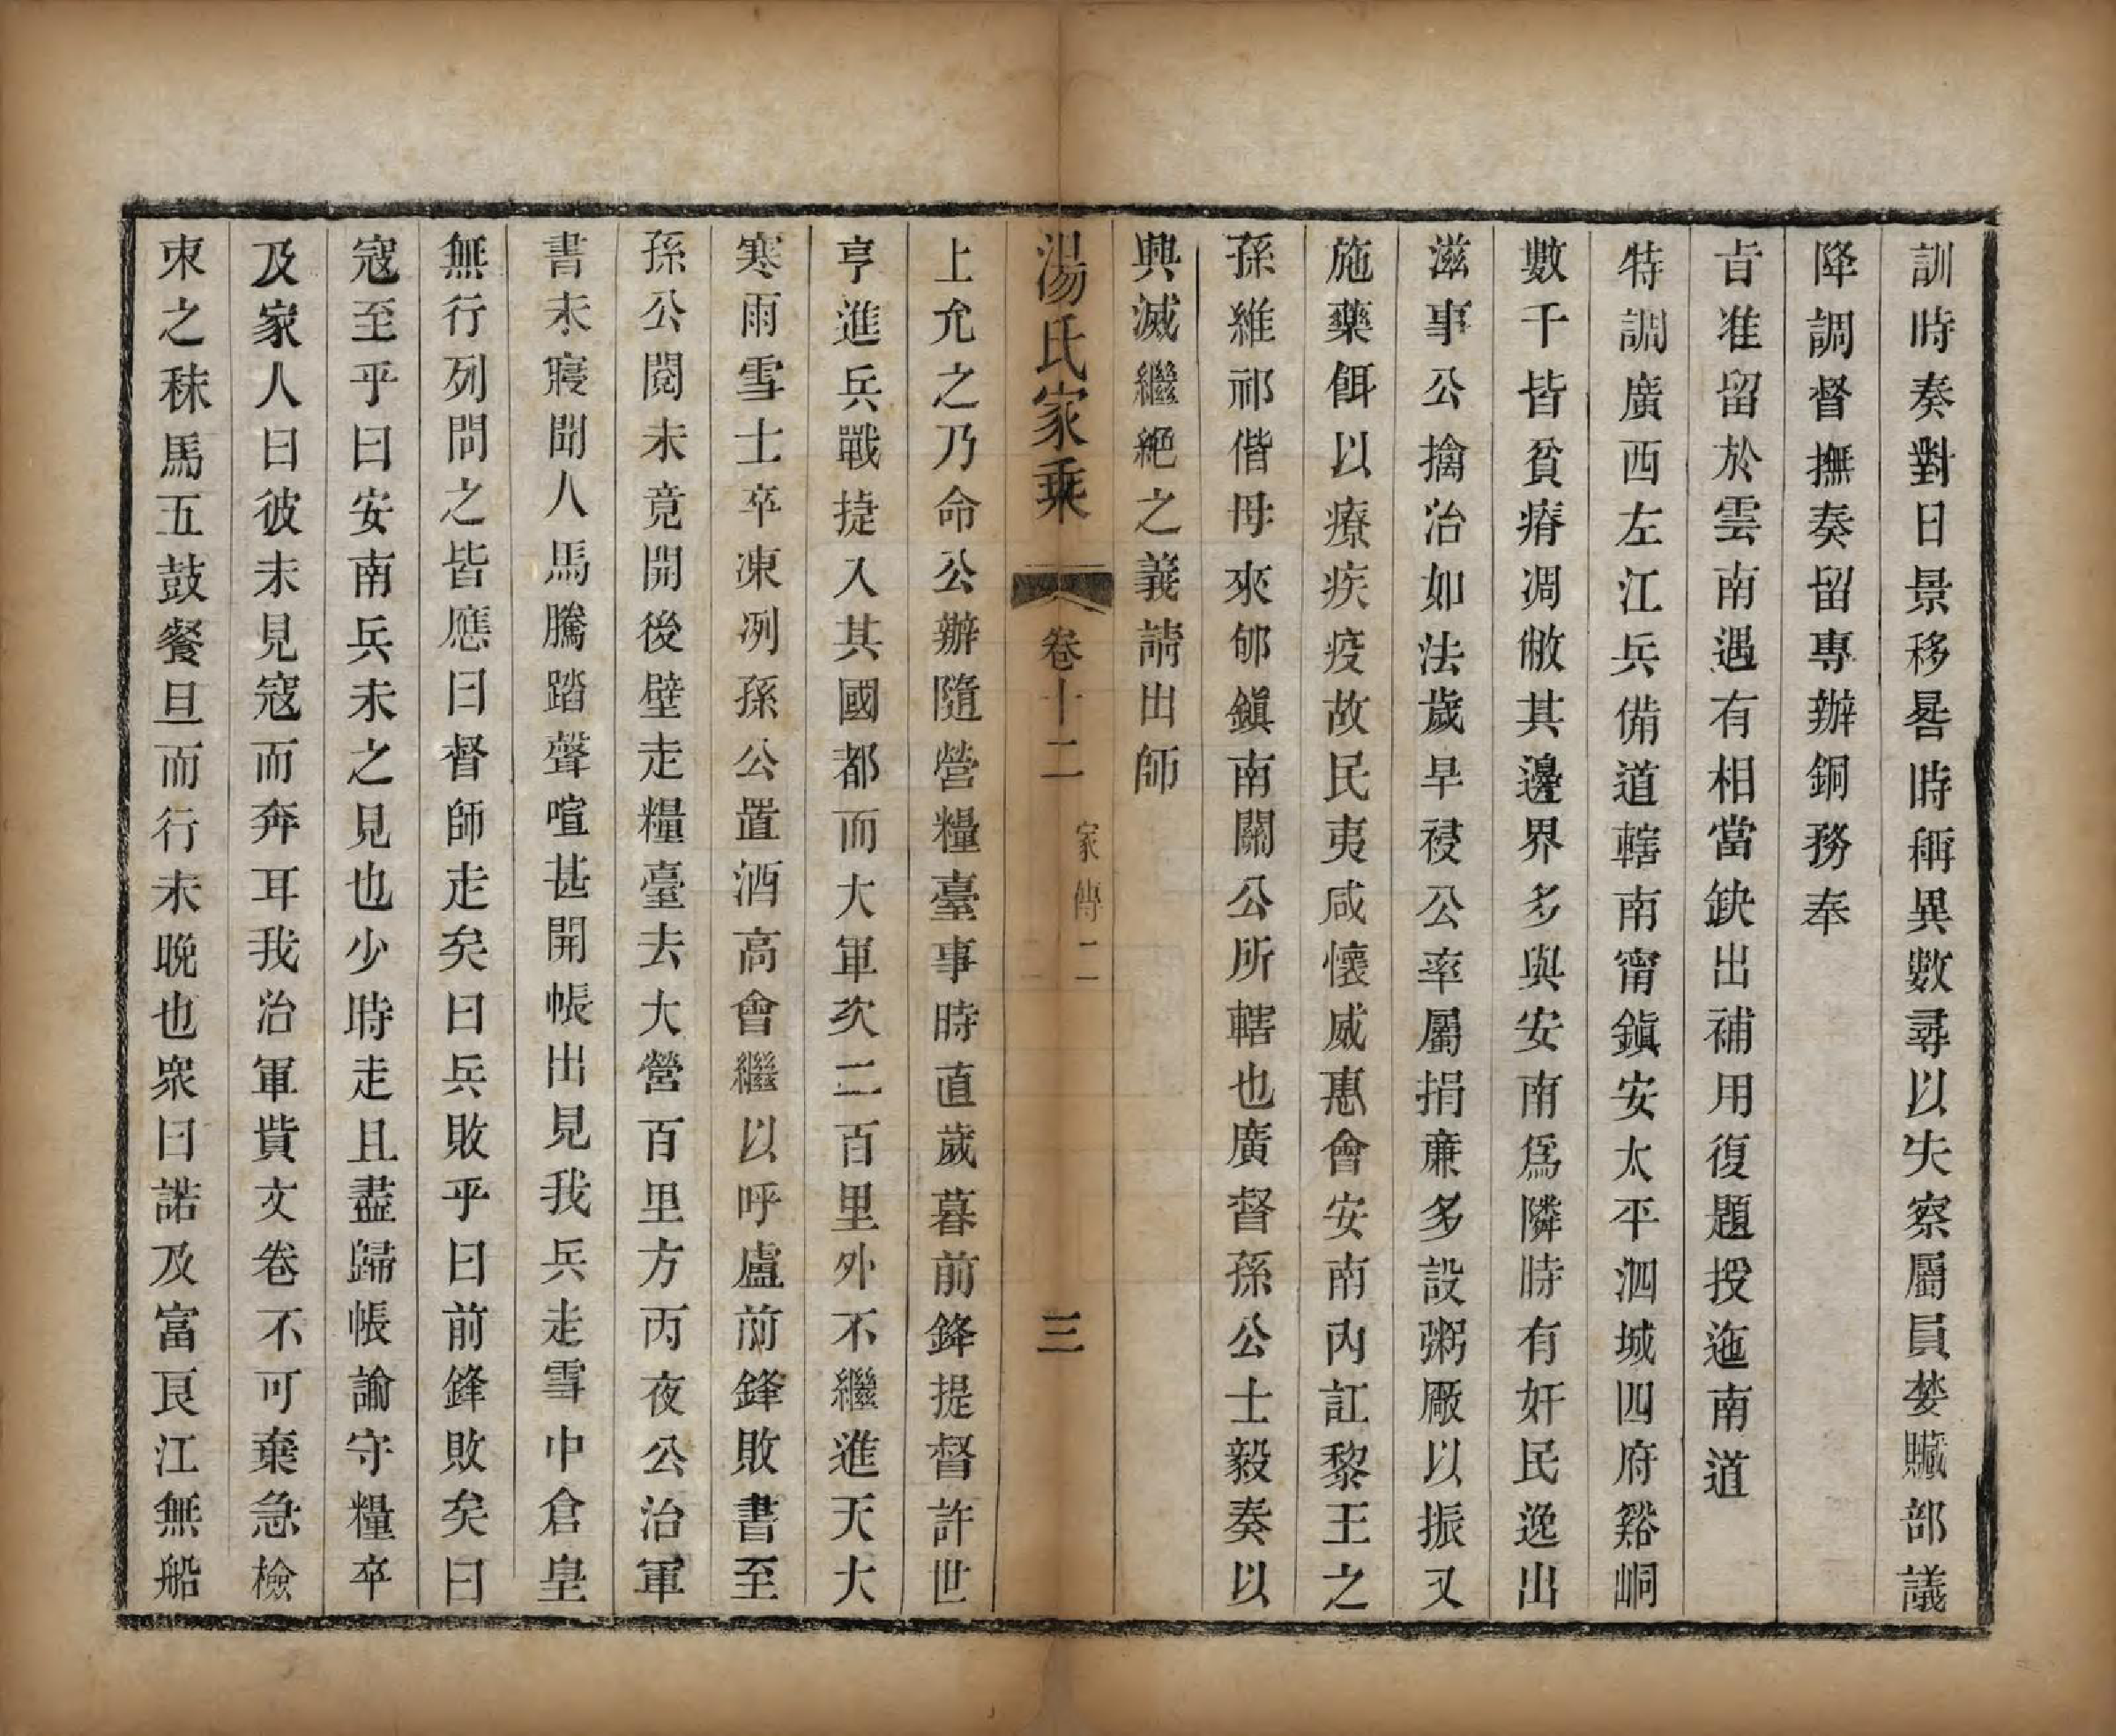 訓時奏對日景移晷時稱異數尋以失察屬員婪贓部議
降調督撫奏留專辦銅務奉
旨准留於雲南遇有相當缺出補用復題授迤南道
特調廣西左江兵備道轄南甯鎮安太平泗城四府谿峒
數千皆貧瘠凋敝其邊界多與安南爲隣時有奸民逸出
滋事公擒治如法歲旱祲公率屬捐廉多設粥厰以振又
施藥餌以療疾疫故民夷咸懷威惠會安南內訌黎王之
孫維祁偕母來郇鎮南關公所轄也廣督孫公士毅奏以
興滅繼絕之義請出師
湯氏家乘 卷十二 家傳二 三
上允之乃命公辦隨營糧臺事時直歲暮前鋒提督許世
亨進兵戰捷入其國都而大軍次二百里外不繼進天大
寒雨雪士卒凍冽孫公置酒高會繼以呼盧前鋒敗書至
孫公閱未竟開後壁走糧臺去大營百里方丙夜公治軍
書未寢聞人馬騰踏聲喧甚開帳出見我兵走雪中倉皇
無行列問之皆應曰督師走矣曰兵敗乎曰前鋒敗矣曰
寇至乎曰安南兵未之見也少時走且盡歸帳諭守糧卒
及家人曰彼未見寇而奔耳我治軍貲文卷不可棄急檢
束之秣馬五鼓餐旦而行未晚也衆曰諾及富良江無船